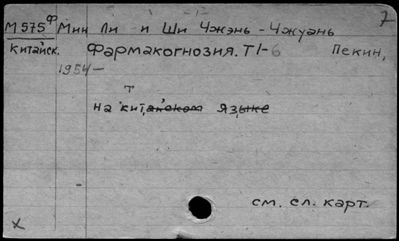 7
М 575 Ф Мин Ли и Ши Чжэнь-Чжуань
Китайск. Фармакогнозия. Т 1-6 Пекин,
1954-
На китайском языке
см. сл. карт.
х